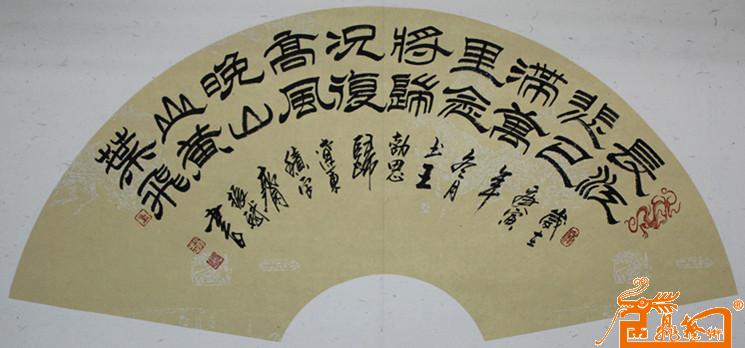 長江
悲已
滯萬
里念
將歸
況復
高風
晚山
山黃
葉飛
歲在
庚寅
年
冬月
王
勃思
歸
東
齋
書